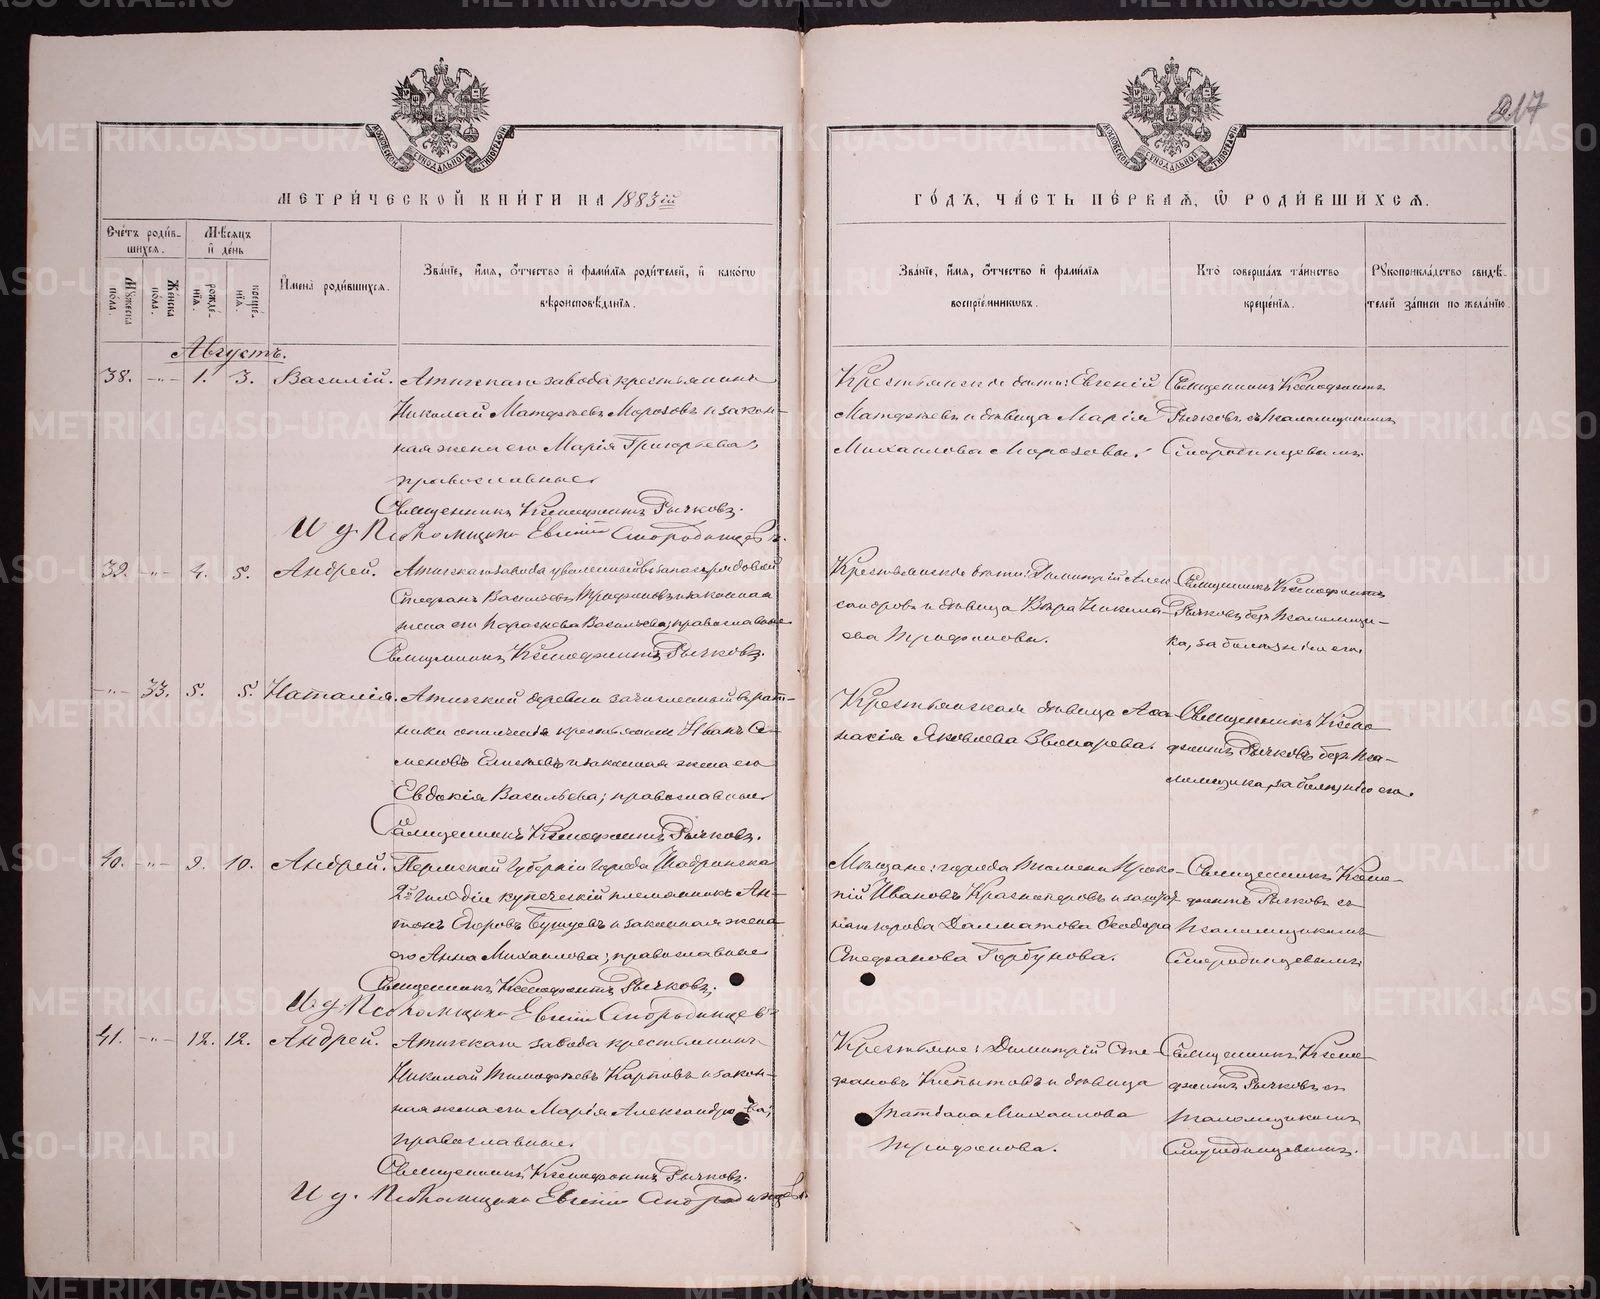 217
МЕТРИ́ЧЕСКОЙ КНИ́ГИ НА 1883ій
ГО́ДЪ, ЧА́СТЬ ПЕ́РВАѦ, Ѽ РОДИ́ВШИХСѦ.
Сче́тъ роди́в-
шихсѧ.
Мꙋ́жеска по́ла.
Же́нска по́ла.
Мѣ́сѧцъ и҆ де́нь
рожде́-
нїѧ.
креще́-
нїѧ.
И҆мена̀ роди́вшихсѧ.
Зва́нїе, и҆́мѧ, ѻ҆́тчество и҆ фами́лїѧ роди́телей, и҆ како́гѡ
вѣроисповѣ́данїѧ.
Зва́нїе, и҆́мѧ, ѻ҆́тчество и҆ фами́лїѧ
воспрїе́мникѡвъ.
Кто̀ соверша́лъ та́инство
креще́нїѧ.
Рꙋкоприкла́дство свидѣ́-
телей за́писи по жела́нїю.
Августъ.
38. -"- 1. 3. Василій. Атигскаго завода крестьянинъ
Николай Матѳѣевъ Морозовъ и закон-
ная жена его Марія Григорьева;
православные.
Священникъ Ксенофонтъ Рычковъ.
И. д. Псаломщика Евгеній Смородинцевъ.
Крестьянскіе дѣти: Евгеній
Матѳѣевъ и дѣвица Марія
Михаилова Морозовы.
Священникъ Ксенофонтъ
Рычковъ съ псаломщикомъ
Смородинцевымъ.
39. -"- 4. 5. Андрей. Атигскаго завода уволенный въ запасъ рядовой
Стефанъ Васильевъ Трифоновъ и законная
жена его Параскева Васильева; православные
Священникъ Ксенофонтъ Рычковъ.
Крестьянскіе дѣти: Димитрій Алек-
сандровъ и дѣвица Вѣра Никола-
ева Трифоновы.
Священникъ Ксенофонтъ
Рычковъ безъ псаломщи-
ка, за болѣзнію его.
-"- 33. 5. 5. Наталія. Атигской деревни зачисленный въ рат-
ники ополченія крестьянинъ Иванъ Се-
меновъ Елисѣевъ и законная жена его
Евдокія Васильева; православные.
Священникъ Ксенофонтъ Рычковъ.
Крестьянская дѣвица Аѳа-
насія Яковлева Звонарева.
Священникъ Ксено-
фонтъ Рычковъ безъ пса-
ломщика, за болѣзнію его.
40. -"- 9. 10. Андрей. Пермской губерніи города Шадринска
2й гильдіи купеческій племянникъ Ан-
тонъ Егоровъ Бушуевъ и законная жена
его Анна Михаилова; православные
Священникъ Ксенофонтъ Рычковъ.
И. д. Псаломщика Евгеній Смородинцевъ
Мѣщане: города Тюмени Проко-
пій Ивановъ Красноперовъ и
города Далматова Ѳеодора
Стефанова Горбунова.
Священникъ Ксено-
фонтъ Рычковъ съ
псаломщикомъ
Смородинцевымъ.
41. -"- 12. 12. Андрей. Атигскаго завода крестьянинъ
Николай Тимофѣевъ Карповъ и закон-
ная жена его Марія Александрова;
православные.
Священникъ Ксенофонтъ Рычковъ.
И. д. Псаломщика Евгеній Смородинцевъ.
Крестьяне: Димитрій Сте-
фановъ Копытовъ и дѣвица
Татіана Михаилова
Трифонова.
Священникъ Ксено-
фонтъ Рычковъ съ
псаломщикомъ
Смородинцевымъ.